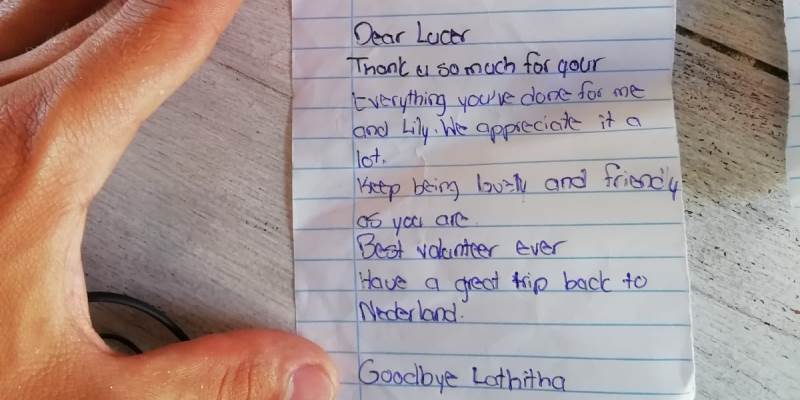 Dear Lucer
Thank u so much for your
Everything you've done for me
and Lily. We appreciate it a
lot.
Keep being lovely and friendly
as you are
Best volunteer ever
Have a great trip back to
Nederland.
Goodbye Lothitha